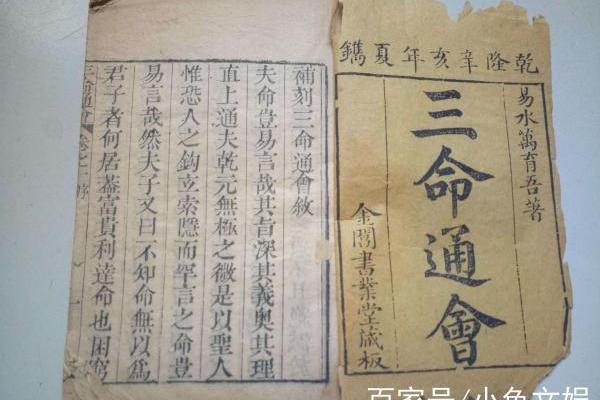 乾隆辛亥年夏鐫
易水萬育吾著
三命通會
金閶書業堂藏板
補刻三命通會敘
夫命豈易言哉其旨深其義奧其理
直上通夫乾元無極之微是以聖人
惟恐人之鈎立索隱而罕言之命豈
易言哉然夫子又曰不知命無以爲
君子者何居葢富貴利達命也困窮
三命通會 卷之一 序 一
百家号/小鱼文娱